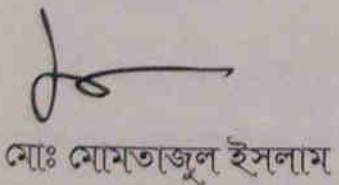 মোঃ মোমতাজুল ইসলাম